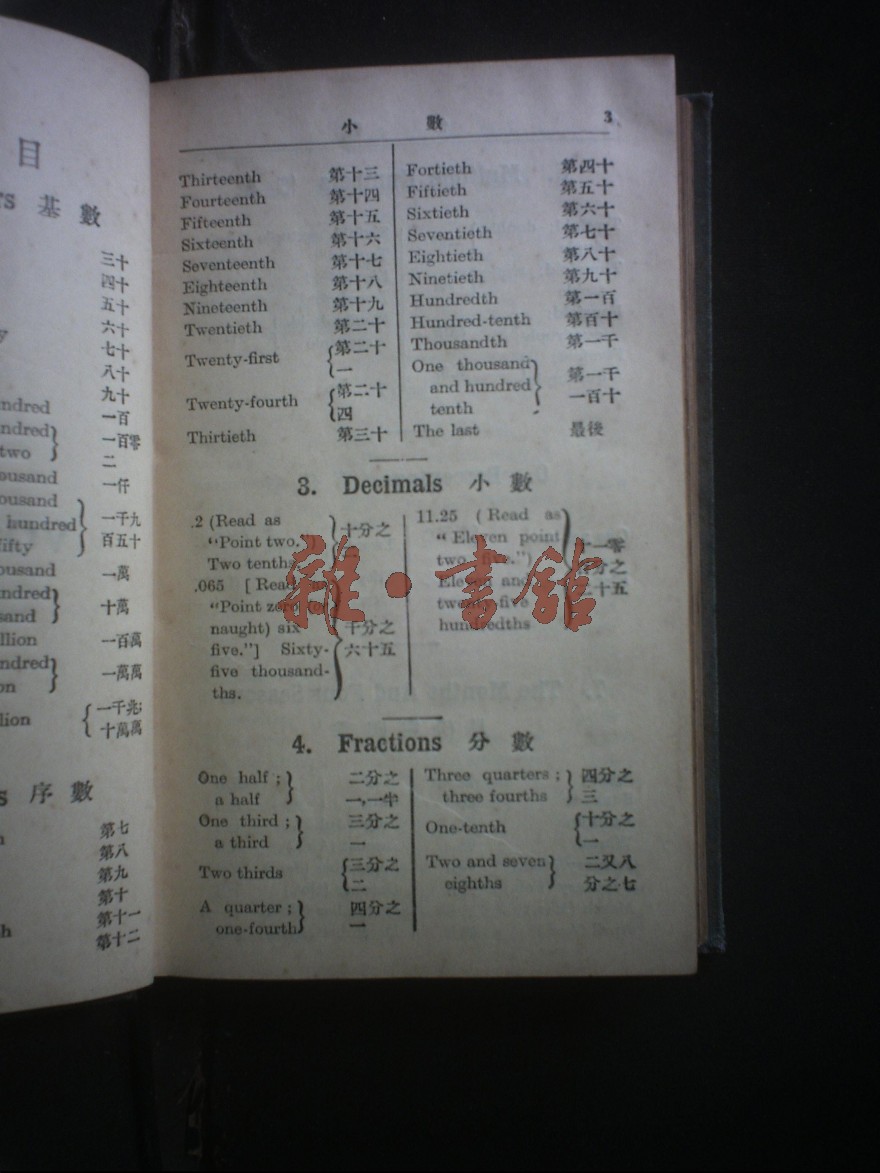 目
基數
三十
四十
五十
六十
七十
八十
九十
一百
一百零
二
一仟
一千九
百五十
一萬
十萬
一百萬
一萬萬
一千兆;
十萬萬
序數
第七
第八
第九
第十
第十一
第十二
小 數 3
Thirteenth 第十三
Fourteenth 第十四
Fifteenth 第十五
Sixteenth 第十六
Seventeenth 第十七
Eighteenth 第十八
Nineteenth 第十九
Twentieth 第二十
Twenty-first 第二十
一
Twenty-fourth 第二十
四
Thirtieth 第三十
Fortieth 第四十
Fiftieth 第五十
Sixtieth 第六十
Seventieth 第七十
Eightieth 第八十
Ninetieth 第九十
Hundredth 第一百
Hundred-tenth 第百十
Thousandth 第一千
One thousand
and hundred 第一千
tenth 一百十
The last 最後
3. Decimals 小數
.2 (Read as
"Point two.") 十分之
Two tenths
.065 [Read as
"Point zero (or
naught) six 千分之
five."] Sixty- 六十五
five thousand-
ths.
11.25 (Read as
"Eleven point
two, five.") 一零
Eleven and 分之
twenty-five 十五
hundredths
雜·書館
4. Fractions 分數
One half; 二分之
a half 一,一半
One third; 三分之
a third 一
Two thirds 三分之
二
A quarter; 四分之
one-fourth 一
Three quarters; 四分之
three fourths 三
One-tenth 十分之
一
Two and seven 二又八
eighths 分之七